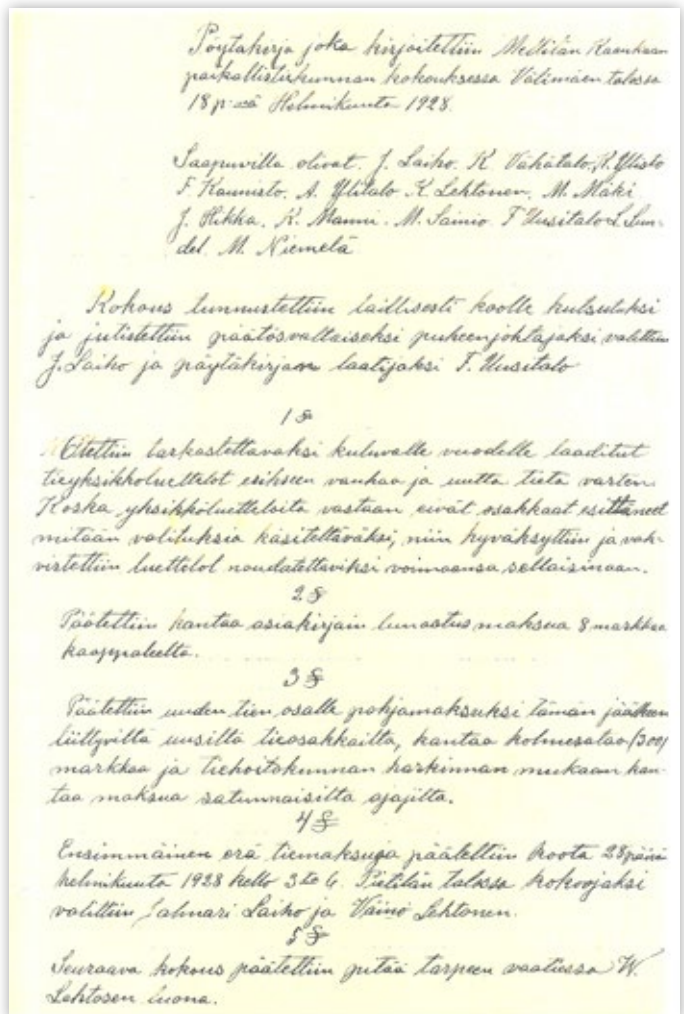 Pöytäkirja joka kirjoitettiin Mettilän Kaanhaan
paikallistiekunnan kokouksessa Välimäen talossa
18 p:nä Helmikuuta 1928.
Saapuvilla olivat. J. Laiho. K. Vähätalo. K. Ylisto
F. Kaunisto. A. Ylitalo K. Lehtonen. M. Mäki
J. Hikka. K. Manni. M. Sainio. F. Uusitalo L. Sun-
del. M. Niemelä
Kokous tunnustettiin laillisesti koolle kutsutuksi
ja julistettiin päätösvaltaiseksi puheenjohtajaksi valittiin
J. Laiho ja pöytäkirjan laatijaksi F. Uusitalo
1 §
Otettiin tarkastettavaksi kuluvalle vuodelle laaditut
tieyksikköluettelot esihseen vanhaa ja uutta tietä varten.
Koska yksikköluetteloita vastaan eivät osakkaat esittäneet
mitään valituksia käsiteltäväksi, niin hyväksyttiin ja vah-
vistettiin luettelot noudatettaviksi voimaansa sellaisinaan.
2 §
Päätettiin kantaa asiakirjain lunastus maksua 8 markkaa
kaappaleelta.
3 §
Päätettiin uuden tien osalle pohjamaksuksi tämän jälkeen
liittyviltä uusilta tieosakkailta, kantaa kolmesataa /300/
markkaa ja tiehoitokunnan harkinnan mukaan kan-
taa maksua satunnaisilta ajajilta.
4 §
Ensimmäinen erä tiemaksuja päätettiin koota 28 päivä
helmikuuta 1928 kello 3 to 6. Pietilän talossa kokoojaksi
valittiin Jalmari Laiho ja Väinö Lehtonen.
5 §
Seuraava kokous päätettiin pitää tarpeen vaatiessa W.
Lehtosen luona.